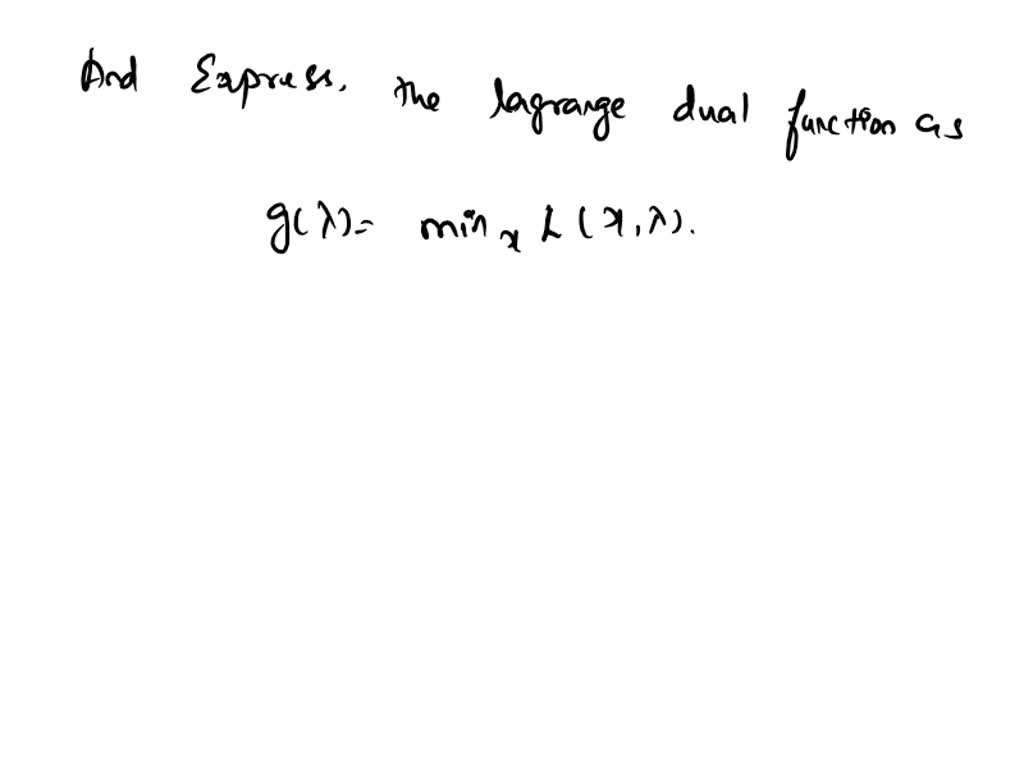 And Express. the lagrange dual function as
g(λ)= min x L (x,λ).